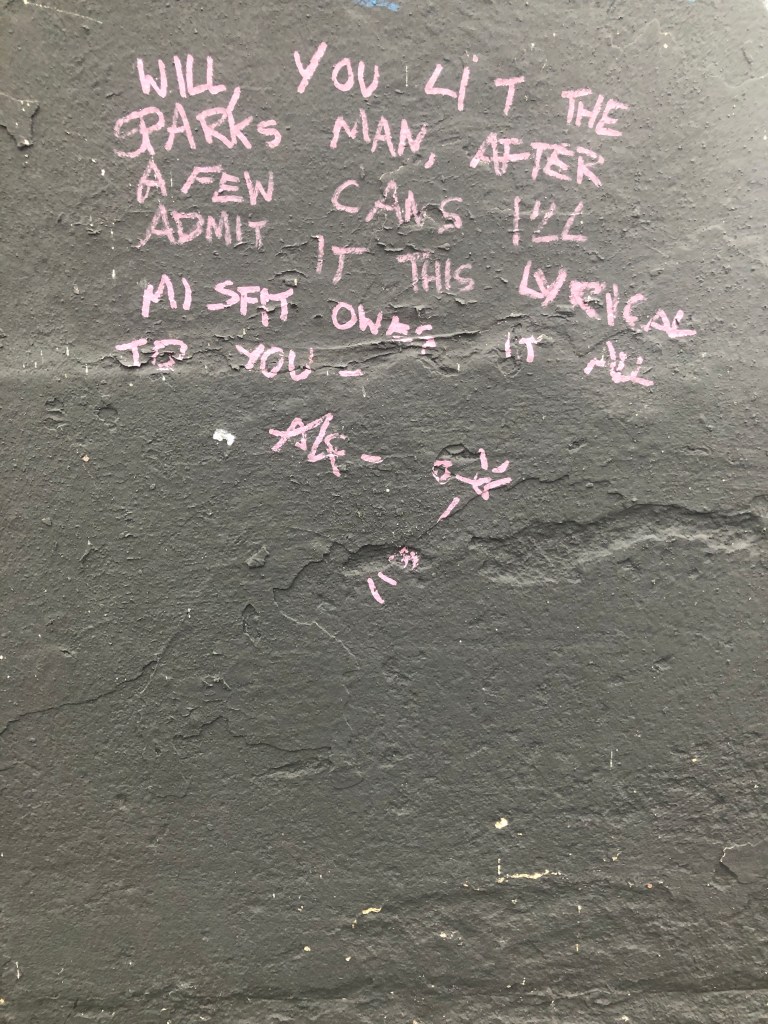 WILL, YOU LIT THE
SPARKS MAN, AFTER
A FEW CANS I'LL
ADMIT IT THIS LYRICAL
MISFIT OWES IT ALL
TO YOU -
ALF -